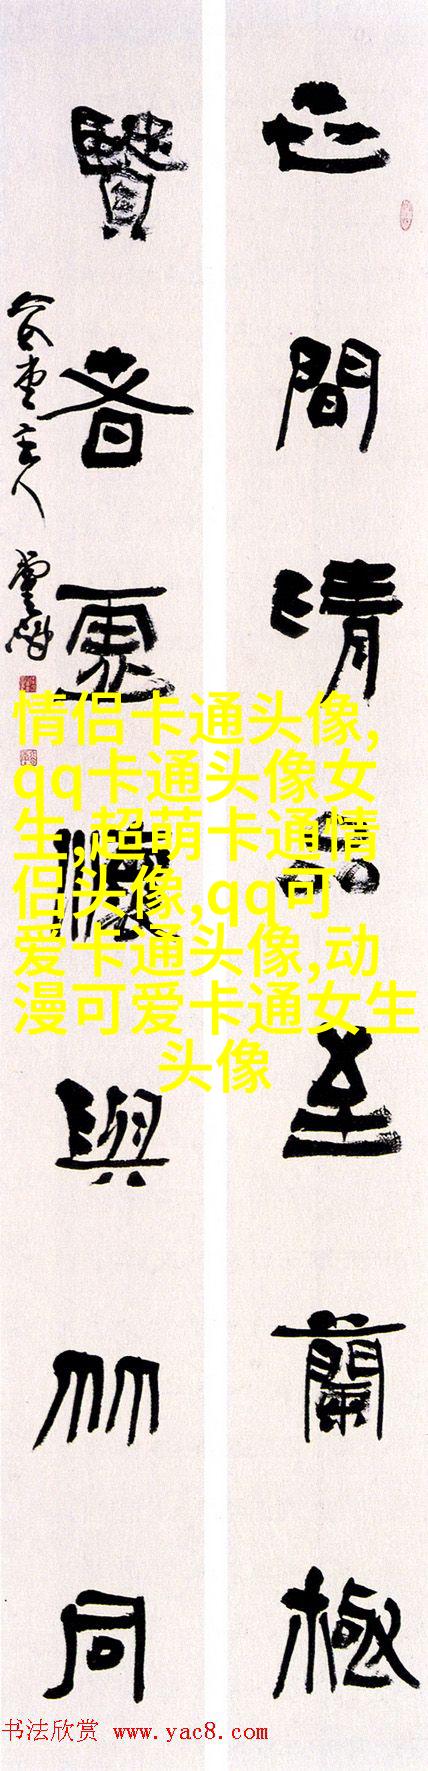 世間清品至蘭極
賢者虛懷與竹同
情侣卡通头像,
qq卡通头像女
生,超萌卡通情
侣头像,qq可
爱卡通头像,动
漫可爱卡通女生
头像
书法欣赏 www.yac8.com